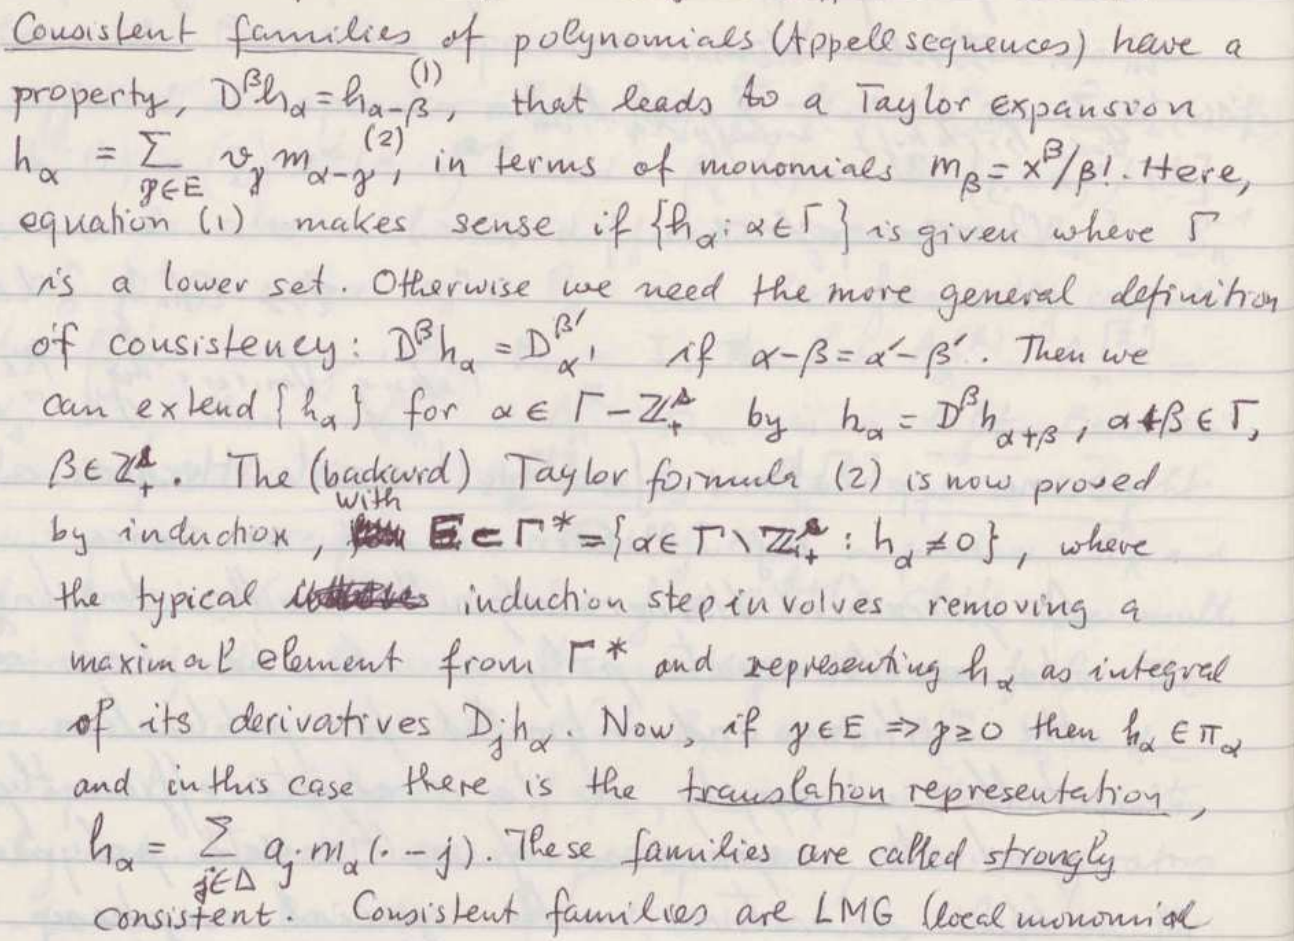 Consistent families of polynomials (Appell sequences) have a
property, D^β h_α = h_{α-β}, (1) that leads to a Taylor expansion
h_α = Σ_{γ∈E} v_γ m_{α-γ}, (2) in terms of monomials m_β = x^β/β!. Here,
equation (1) makes sense if {h_α : α ∈ Γ} is given where Γ
is a lower set. Otherwise we need the more general definition
of consistency: D^β h_α = D^{β'}_{α'} if α-β = α'-β'. Then we
can extend {h_α} for α ∈ Γ - Z^s_+ by h_α = D^β h_{α+β}, α+β ∈ Γ,
β ∈ Z^s_+. The (backwrd) Taylor formula (2) is now proved
by induction, with E ⊂ Γ* = {α ∈ Γ \ Z^s_+ : h_α ≠ 0}, where
the typical induction step involves removing a
maximal element from Γ* and representing h_α as integral
of its derivatives D_j h_α. Now, if γ ∈ E ⇒ γ ≥ 0 then h_α ∈ π_α
and in this case there is the translation representation,
h_α = Σ_{j∈Δ} a_j m_α(· - j). These families are called strongly
consistent. Consistent families are LMG (local monomial